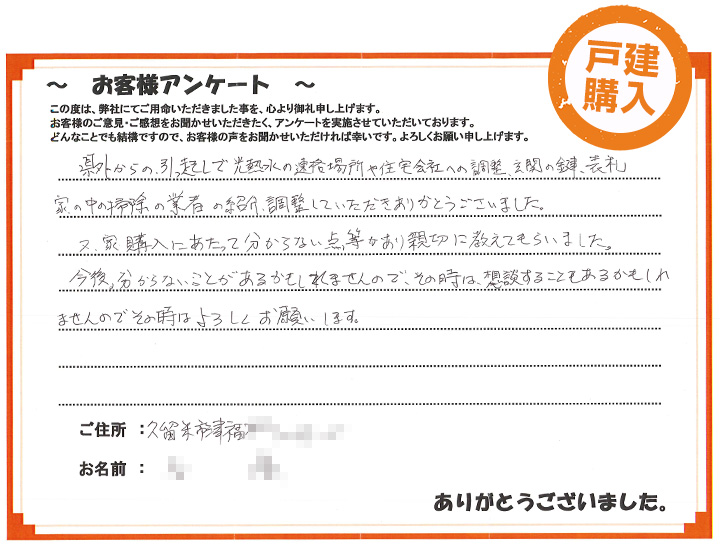 戸建
購入
～ お客様アンケート ～
この度は、弊社にてご用命いただきました事を、心より御礼申し上げます。
お客様のご意見・ご感想をお聞かせいただきたく、アンケートを実施させていただいております。
どんなことでも結構ですので、お客様の声をお聞かせいただければ幸いです。よろしくお願い申し上げます。
県外からの、引っ起しで光熱水の連絡場所や住宅会社への調整、玄関の鍵、表札
家の中の掃除の業者の紹介、調整していただきありがとうございました。
又、家購入にあたって分からない点、等かあり親切に教えてもらいました。
今後、分からないことがあるかもしれませんので、その時は、想談することもあるかもしれ
ませんのでその時はよろしくお願いします。
ご住所 ：久留米市津福
お名前 ：
ありがとうございました。